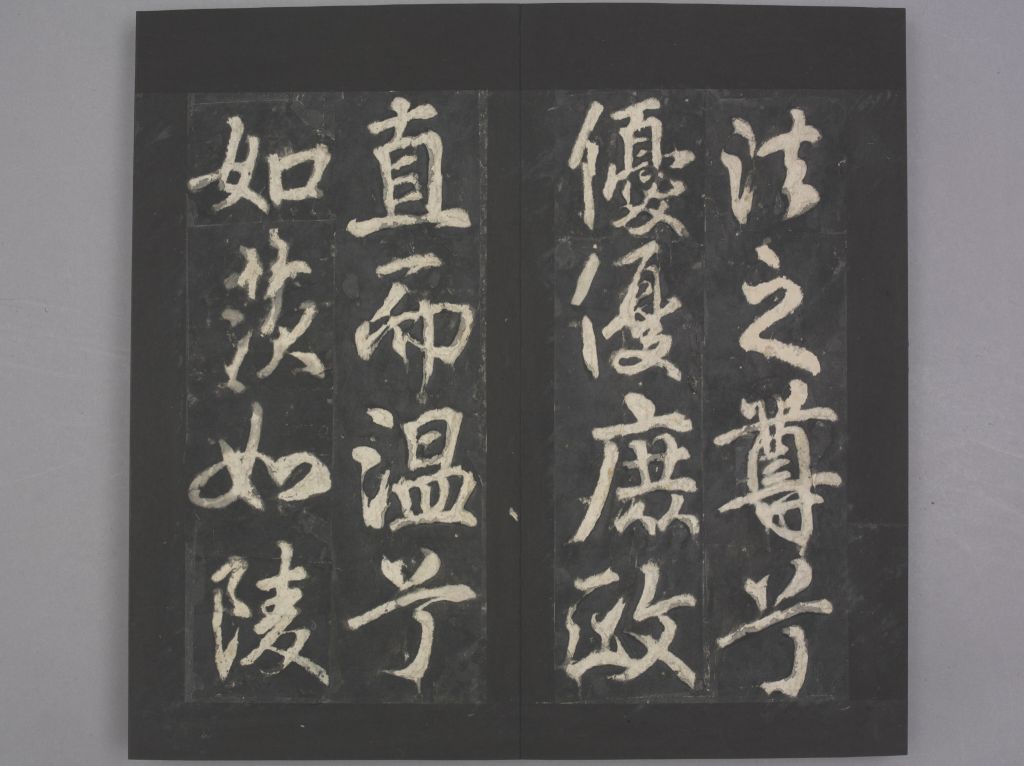 法之尊兮
優優庶政
直而温兮
如茨如陵